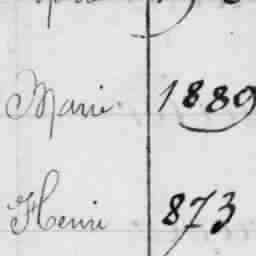 Marie 1889
Henri 873